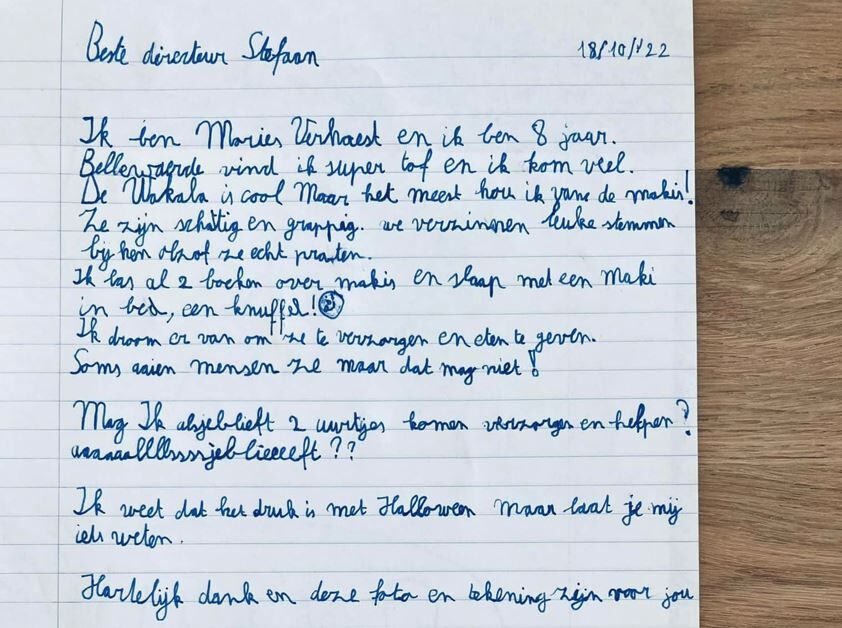 Beste directeur Stefaan
18/10/'22
Ik ben Maries Verhaest en ik ben 8 jaar.
Bellewaerde vind ik super tof en ik kom veel.
De Wakala is cool Maar het meest hou ik vans de makis!
Ze zijn schattig en grappig. we verzinnen leuke stemmen
bij hen alzof ze echt praten.
Ik las al 2 boeken over makis en slaap met een Maki
in bed, een knuffel!
Ik droom er van om ze te verzorgen en eten te geven.
Soms aaien mensen ze maar dat mag niet!
Mag Ik alsjeblieft 2 uurtjes komen verzorgen en helpen?
aaaaaallllsssjeblieeeeft??
Ik weet dat het druk is met Halloween maar laat je mij
iets weten.
Hartelijk dank en deze foto en tekening zijn voor jou